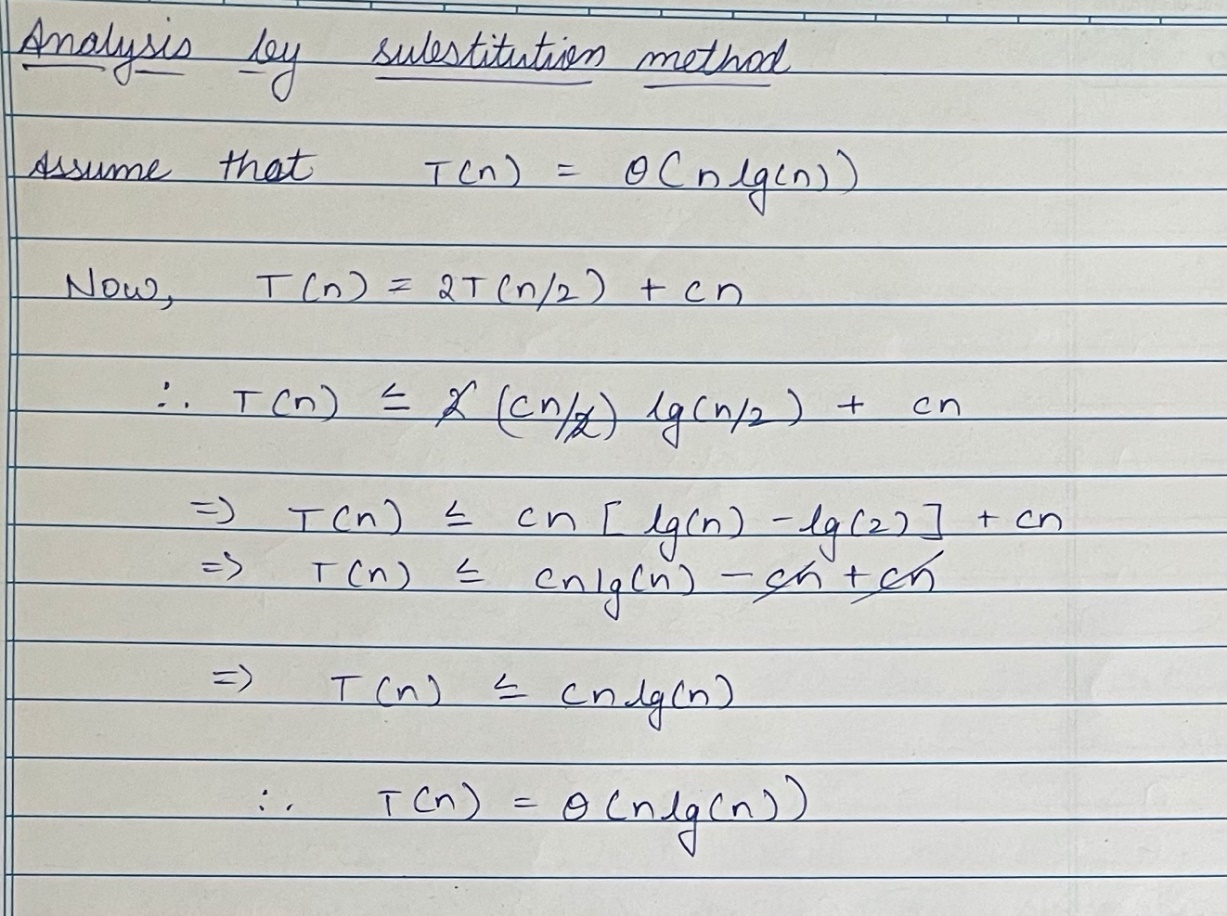 Analysis by substitution method
Assume that T(n) = θ(n lg(n))
Now, T(n) = 2T(n/2) + cn
∴ T(n) ≤ 2 (cn/2) lg(n/2) + cn
=> T(n) ≤ cn [ lg(n) - lg(2)] + cn
=> T(n) ≤ cn lg(n) - cn + cn
=> T(n) ≤ cn lg(n)
∴ T(n) = θ(n lg(n))